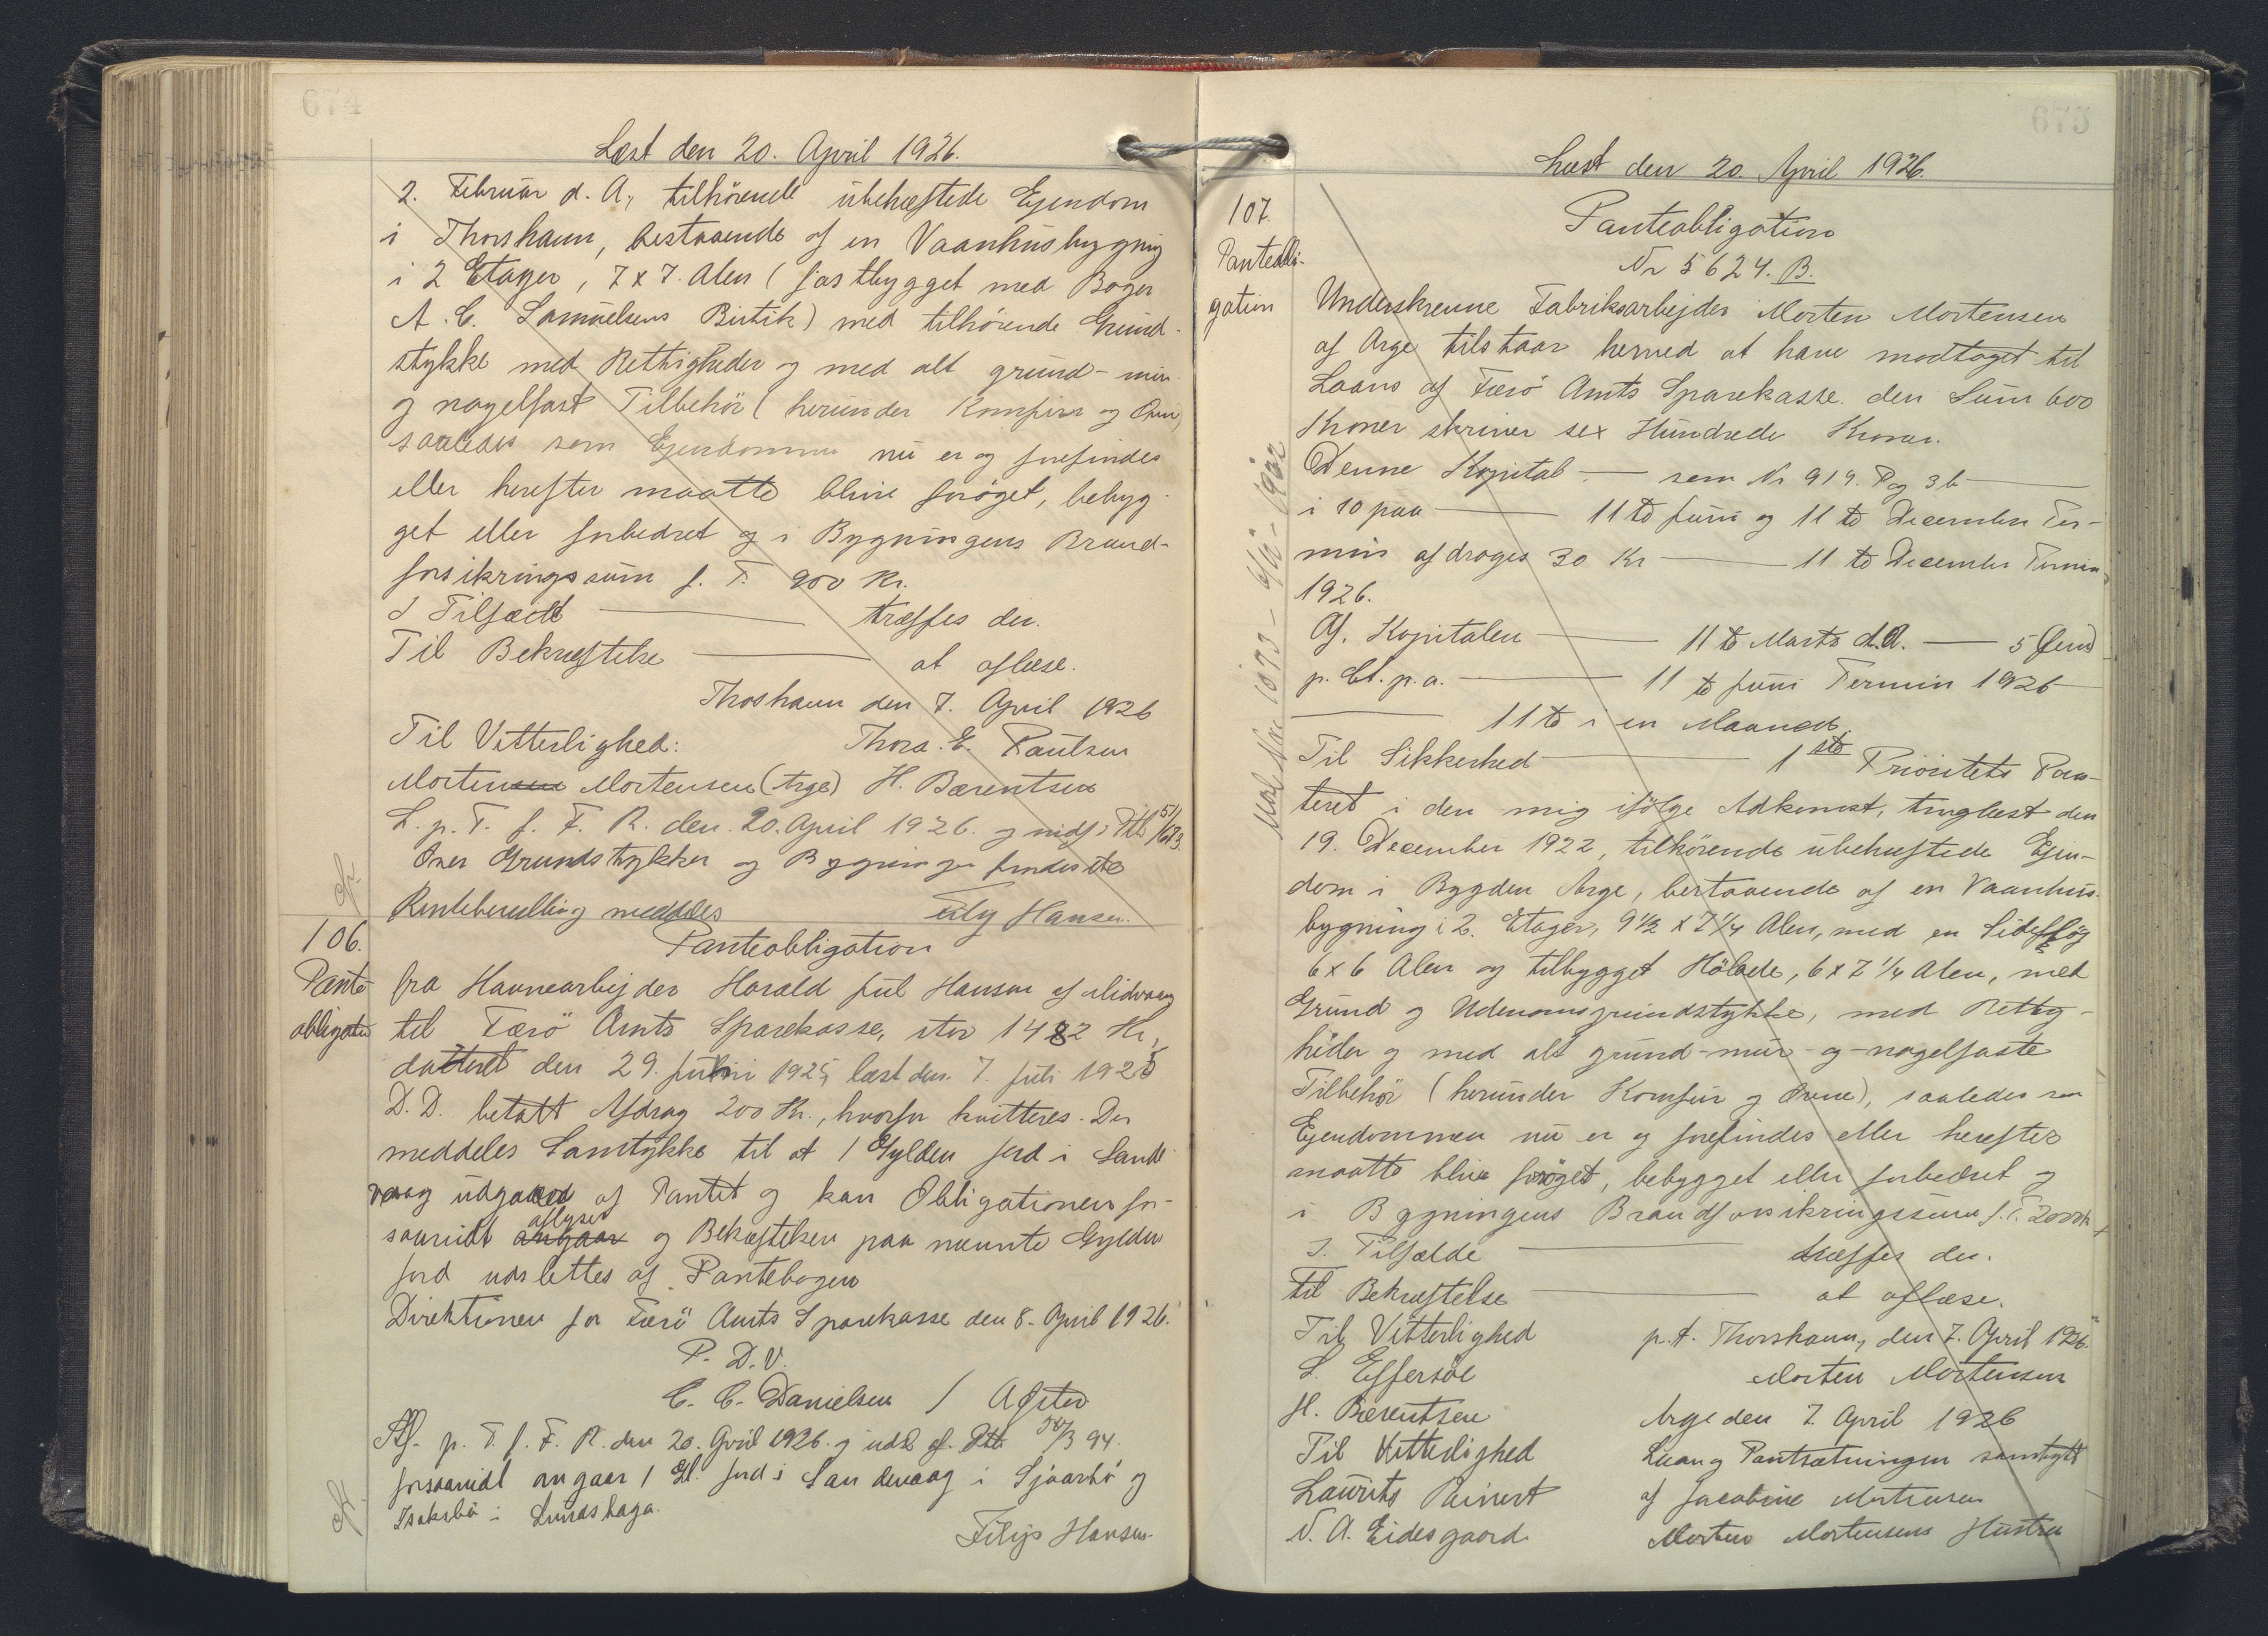 674
Læst den 20. April 1926.
2. Februar d. A., tilhörende ubehæftede Ejendom
i Thorshavn, bestaaende af en Vaanhusbygning
i 2 Etager, 7 x 7. Alen ( fastbygget med Bager
A. C. Samuelsens Butik) med tilhörende Grund-
stykke med Rettigheder og med alt grund- mur-
og nagelfast Tilbehör ( herunder Komfur og Ovne)
saaledes som Ejendommen nu er og forefindes
eller herefter maatte blive foröget, bebyg-
get eller forbedret og i Bygningens Brand-
forsikringssum f. T. 900 Kr.
I Tilfælde træffes der.
Til Bekræftelse at aflæse.
Thorshavn den 7. April 1926
Til Vitterlighed: Thora. E. Paulsen
Mortensen Mortensen (Arge) H. Bærentsen
L. p. T. f. F. R. den 20. April 1926. og indf. i Ptb 51/683.
Over Grundstykker og Bygninger findes ite
Rentebevilling meddeles Filip Hansen.
106.
Pante
obligation
Panteobligation
fra Havnearbejder Harald Juul Hansen af Midvaag
til Færö Amts Sparekasse, stor 1482 Kr,
dateret den 29. Juni 1925, læst den. 7. Juli 1925
D. D. betalt Afdrag 200 Kr., hvorfor kvitteres. Der
meddeles Samtykke til at 1 Gylden Jord i Sand
vaag udgaar af Pantet og kan Obligationen for-
saavidt angaar aflyses og Bekræftelsen paa nævnte Gylden
Jord udslettes af Pantebogen
Direktionen for Færö Amts Sparekasse den 8. April 1926.
P. D. V.
C. C. Danielsen /
Af. p. T. f. F. R. den 20. April 1926. og udsl. af Ptb 94.
forsaavidt angaar 1 Gl. Jord i Sandevaag i
i
Filip Hansen
675
Læst den 20. April 1926.
107.
Panteobli-
gation
Panteobligation
Nr 5624. B.
Underskrevne Fabriksarbejder Morten Mortensen
af Arge tilstaar herved at have modtaget til
Laans af Færö Amts Sparekasse den Sum 600
Kroner skriver sex Hundrede Kroner.
Denne Kapital som Nr 919. Pag 36
i 10 paa 11 te Juni og 11 te December Ter-
min afdrages 30 Kr 11 te December Termin
1926.
Af. Kapitalen 11 te Marts d. A. 5 Fem
p. Ct. p. a. 11 te Juni Termin 1926
11 te i en Maaned.
Til Sikkerhed 1ste Prioritets Pan-
teret i den mig ifölge Adkomst, tinglæst den
19. December 1922, tilhörende ubehæftede Ejen-
dom i Bygden Arge, bestaaende af en Vaanhus-
bygning i 2. Etager, 9 1/2 x 7 1/4 Alen, med en Sideflög
6 x 6 Alen og tilbygget Hölade, 6 x 7 1/4 Alen, med
Grund og Udenomsgrundstykke, med Rettig-
heder og med alt grund-mur-og-nagelfaste
Tilbehör (herunder Komfur og Ovne), saaledes som
Ejendommen nu er og forefindes eller herefter
maatte blive foröget, bebygget eller forbedret og
i Bygningens Brandforsikringssum f. T. 2000 Kr
I. Tilfælde træffes der.
Til Bekræftelse at aflæse.
Til Vitterlighed p. t. Thorshavn, den 7. April 1926.
S. Effersöe Morten Mortensen
H. Bærentsen Arge den 7. April 1926
Til Vitterlighed Laan og Pantsætningen samtykt
Laurits Reinert af Jacobine Mortensen
N. A. Eidesgaard Morten Mortensens Hustru